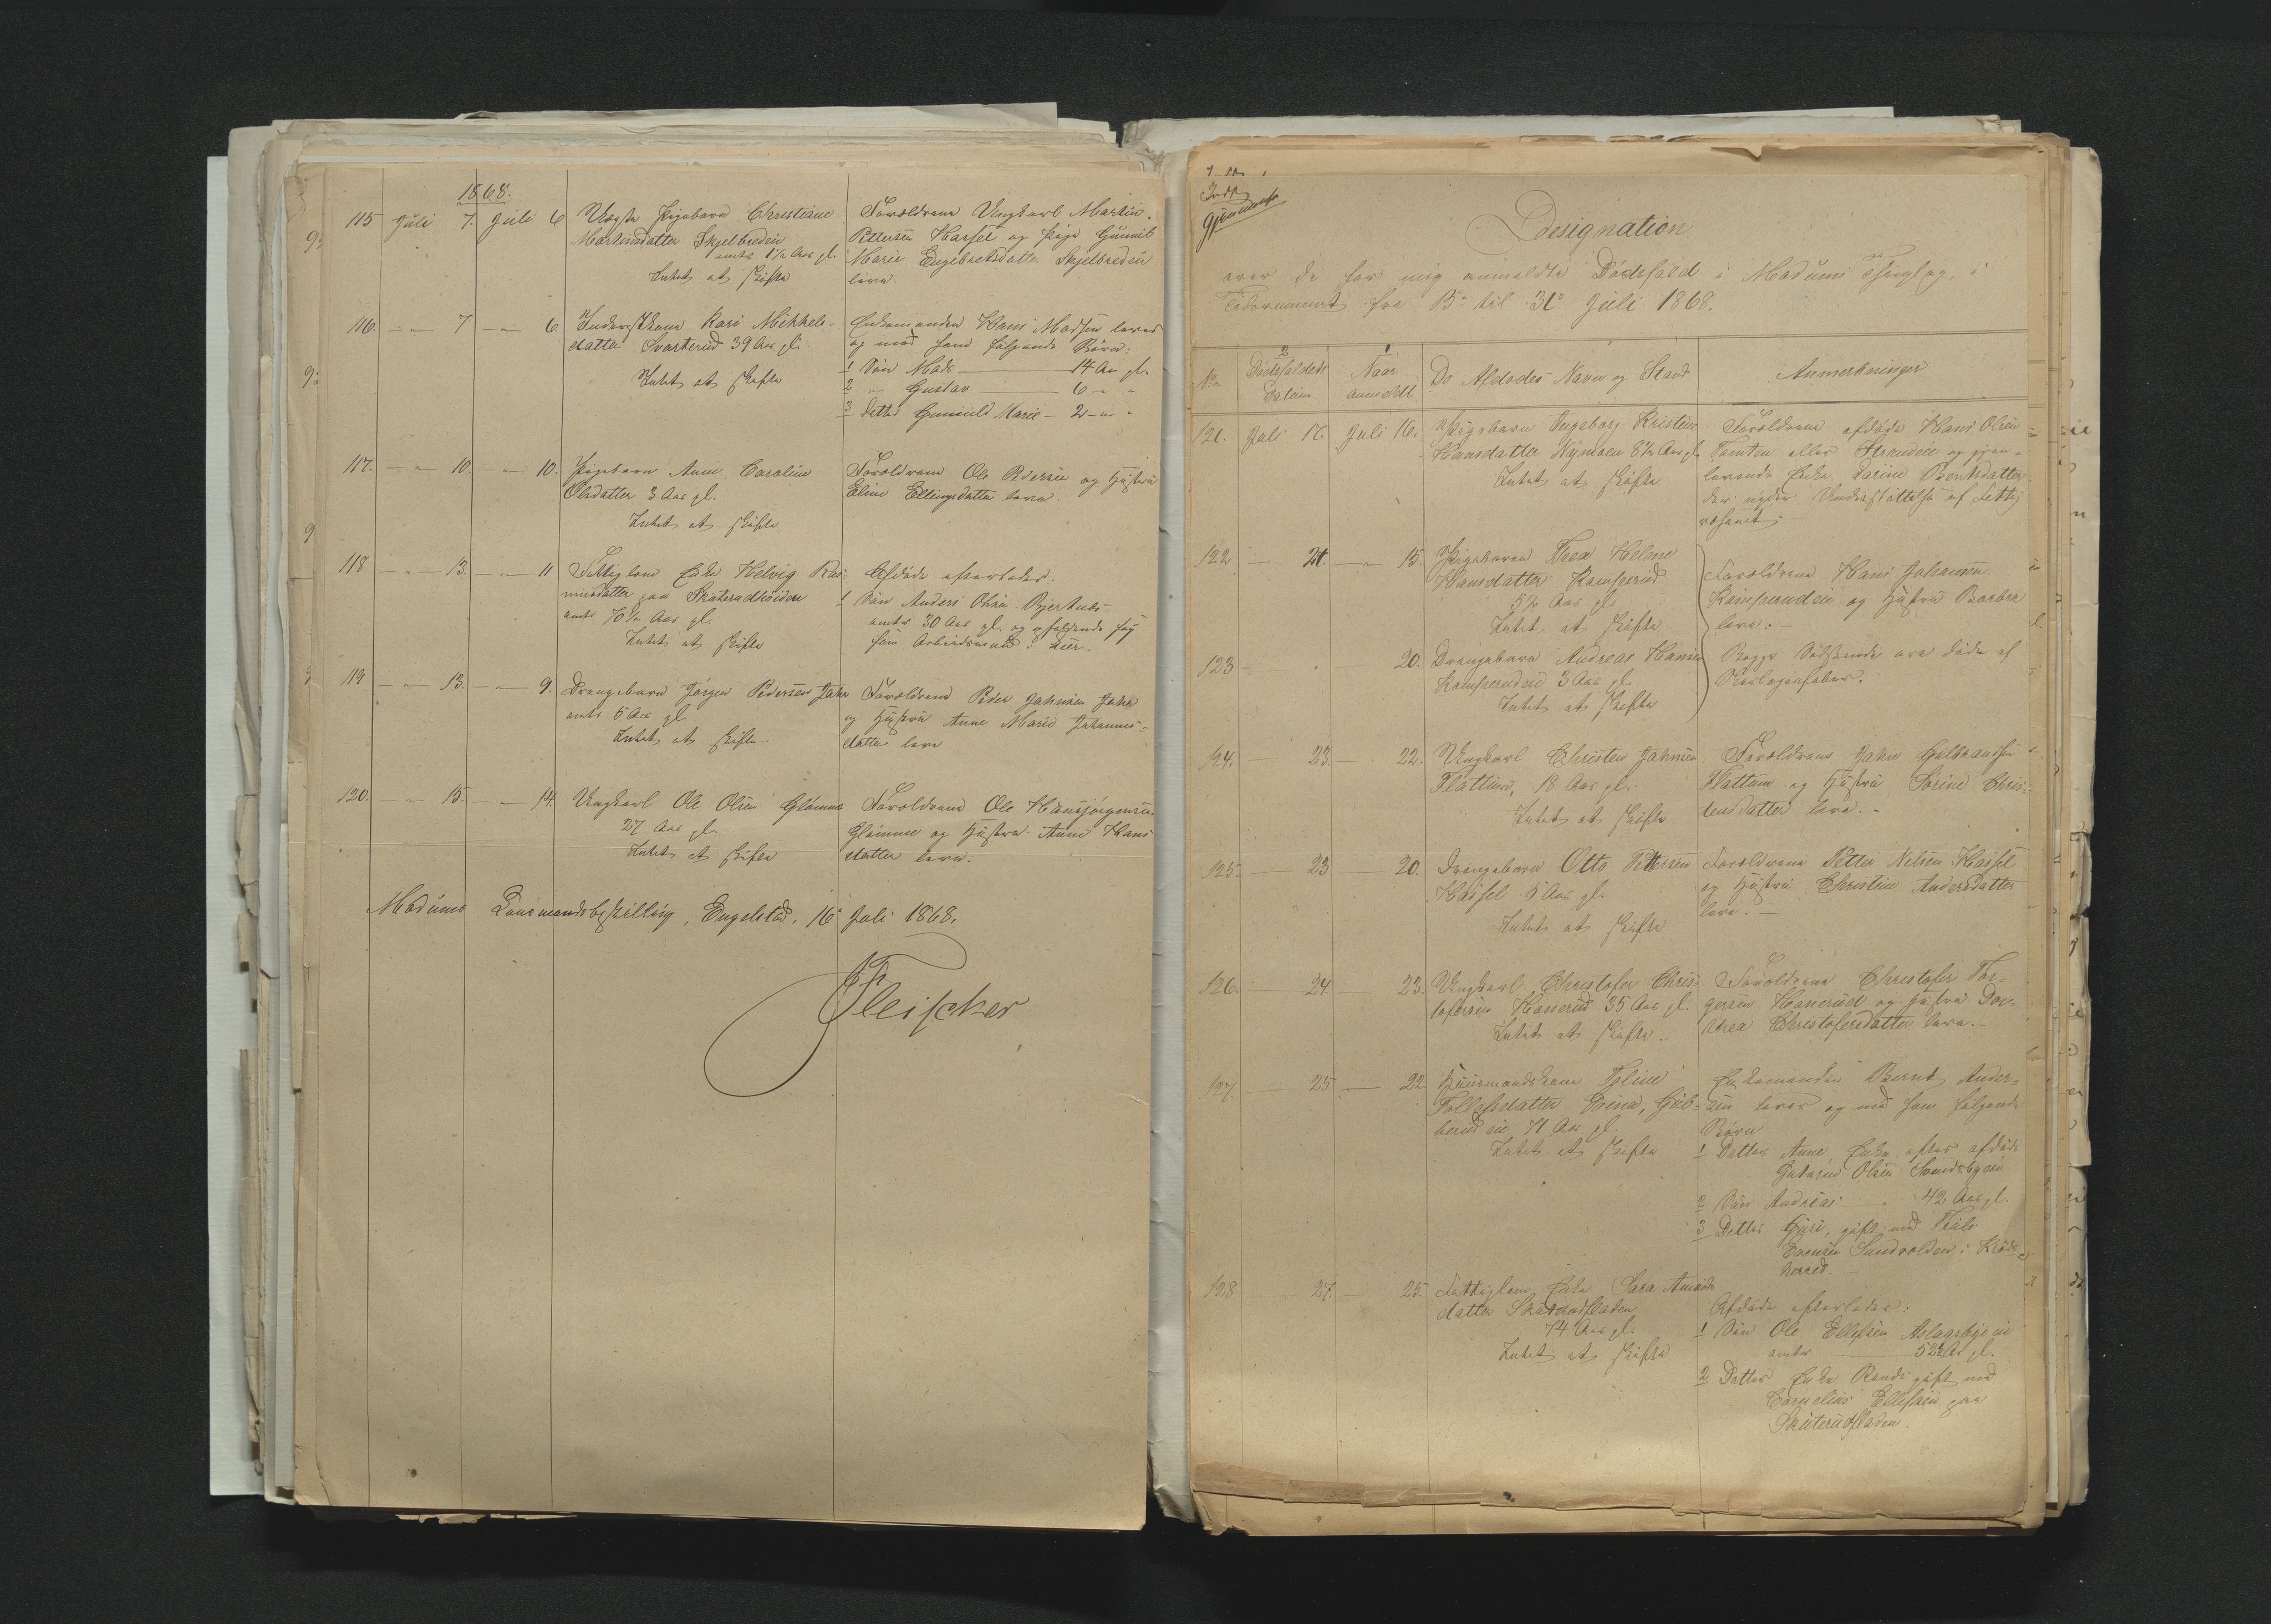 1868.
115 Juli 7. Juli 6 Uægte Pigebarn Christiane
Martinsdatter Skjelbredeie
omtr. 1½ Aar gl.
Intet at skifte
Forældrene Ungkarl Martin
Pettersen Hassel og Pige Gunnil
Marie Engebretsdatter Skjelbredeie
leve.
116. — " — 7 — " — 6 Inderstkone Kari Mikkels-
datter Svarterud 39 Aar gl.
Intet at skifte
Enkemanden Hans Madsen lever
og med ham følgende Børn:
1 Søn Mads — 14 Aar gl.
2 " Gustav — 6 — "
3 Datter Gunnild Marie — 2 — " —
117. — " — 10. — " — 10. Pigebarn Anne Caroline
Olsdatter 3 Aar gl.
Intet at skifte
Forældrene Ole Pedersen og Hustru
Eline Ellingsdatter leve.
118 — " — 13. — " — 11 Fattiglem Enke Helvig Ras-
musdatter paa Skuterudhøiden
omtr. 70½ Aar gl.
Intet at skifte
Afdøde efterlader.
1 Søn Anders Olsen Bjertnæs
omtr 30 Aar gl. og opholdende sig
som Arbeidsmand i Lier.
119 — " — 13. — " — 9. Drengebarn Jørgen Pedersen Jahr
omtr. 5 Aar gl
Intet at skifte.
Forældrene Peder Jahnsen Jahr
og Hustru Anne Marie Johannes-
datter leve
120. — " — 15. — " — 14. Ungkarl Ole Olsen Glømme
27 Aar gl.
Intet at skifte
Forældrene Ole Hansjørgensen
Glømme og Hustru Anne Hans
datter leve.
Modums Lensmandsbestilling, Engelstad, 16 Juli 1868.
Fleischer
Designation
over de for mig anmeldte Dødsfald i Modums Thinglag, i
Tidsrummet fra 15de til 31te Juli 1868.
No. 2 Dødsfaldets Datum 1 Naar anmeldt De Afdødes Navn og Stand Anmerkninger
121. Juli 17. Juli 16. Pigebarn Ingeborg Kristine
Hansdatter Nymoen 8½ Aar gl.
Intet at skifte
Forældrene afdøde Hans Olsen
Tomten eller Stranden og gjen-
levende Enke Karine Berntsdatter
der nyder Understøttelse af Fattig
væsenet.
122. — 21 — " — 15. Pigebarn Thea Helene
Hansdatter Komperud
5½ Aar gl.
Intet at skifte
Forældrene Hans Johansen
Komperudeie og Hustru Barbra
leve. —
123 — " — 20. Drengebarn Andreas Hansen
Komperudeie 3 Aar gl.
Intet at skifte
Begge Sødskende ere døde af
Skarlagensfeber.
124. — 23. — 22. Ungkarl Christen Jahnsen
Flattum, 18 Aar gl.
Intet at skifte
Forældrene Jahn Gulbrandsen
Flattum og Hustru Sørine Chris-
tensdatter leve. —
125. — 23 — 20. Drengebarn Otto Pettersen
Hassel 5 Aar gl.
Intet at skifte
Forældrene Petter Nilsen Hassel
og Hustru Christine Andersdatter
leve. —
126. — 24 — 23. Ungkarl Christofer Chris-
tofersen Hanerud 35 Aar gl.
Intet at skifte.
Forældrene Christofer Tor-
gersen Hanerud og Hustru Dor-
thea Christofersdatter leve. —
127. — 25 — 22 Huusmandskone Toline
Tollefsdatter Grina, Gub-
berudeie 71 Aar gl.
Intet at skifte
Enkemanden Bernt Anders-
sen lever og med ham følgende
Børn
1 Datter Anne, Enke efter afdøde
Guttorm Olsen Svendsbyeie
2 Søn Andreas — 42 Aar gl.
3 Datter Guri, gift med Truls
Evensen Sundvolden i Kryds-
herred.
128 — 27. — 25. Fattiglem Enke Sara Amunds
datter Skuterudfladen
74 Aar gl.
Intet at skifte
Afdøde efterlader:
1 Søn Ole Ellefsen Aslagsbyeie
omtr — 52 Aar gl.
2 Datter Enke Randi gift med
Cornelius Ellefsen paa
Skuterudfladen.